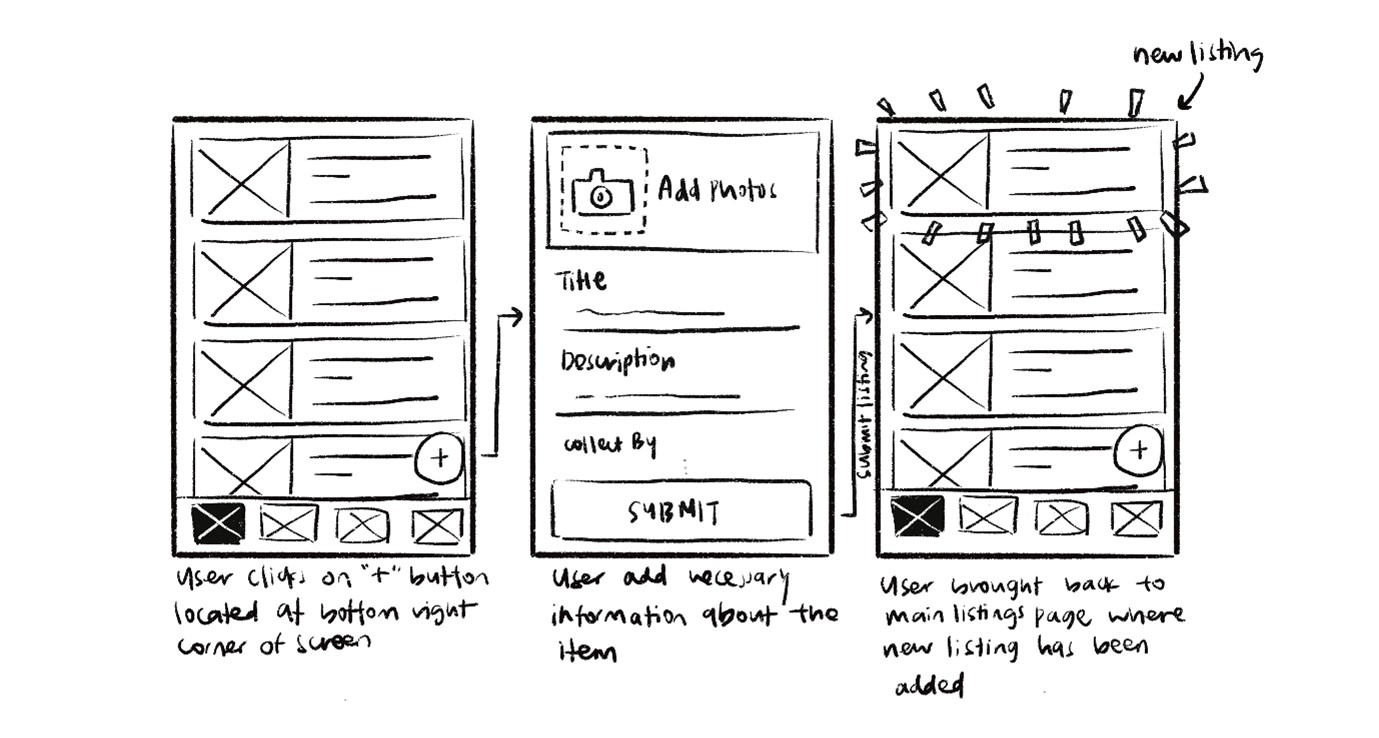 new listing
+
User clicks on "+" button
located at bottom right
corner of screen
Add Photos
Title
Description
collect By
SUBMIT
User add necessary
information about the
item
submit listing
+
User brought back to
main listings page where
new listing has been
added